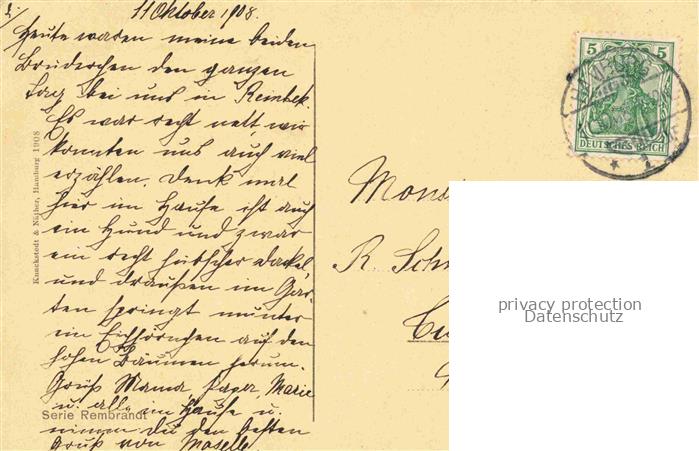 2./
11 Oktober 1908.
Heute waren meine beiden
Brüderchen den ganzen
Tag bei uns in Reinbek.
Es war recht nett, wir
konnten uns auch viel
erzählen. Denk mal
hier im Hause ist auch
ein Hund und zwar
ein recht hübscher Dackel,
und draußen im Gar-
ten springt munter
ein Eichhörnchen auf den
hohen Bäumen herum.
Grüß Mama, Papa, Marie
u. alle im Hause u.
nimm Du den besten
Gruß von
Serie Rembrandt
Knackstedt & Näther, Hamburg 1908
5 5
DEUTSCHES REICH
R. Sch
privacy protection
Datenschutz